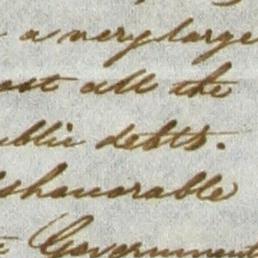 a very large
ost all the
ublic debts.
ishonorable
Government